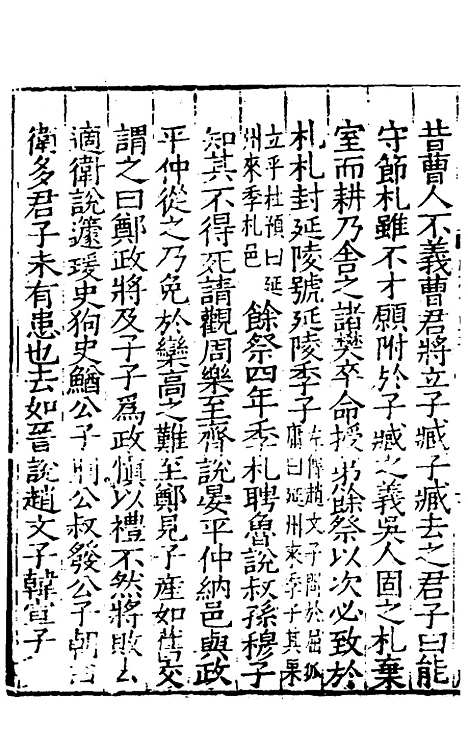 昔曹人不義曹君將立子臧子臧去之君子曰能
守節札雖不才願附於子臧之義吳人固之札棄
室而耕乃舍之諸樊卒命授弟餘祭以次必致於
札札封延陵號延陵季子左傳趙文子問於屈狐
庸曰延州來季子其果
立乎杜預曰延
州來季札邑餘祭四年季札聘魯說叔孫穆子
知其不得死請觀周樂至齊說晏平仲納邑與政
平仲從之乃免於欒高之難至鄭見子產如舊交
謂之曰鄭政將及子子為政慎以禮不然將敗去
適衛說蘧瑗史狗史鰌公子荆公叔發公子朝曰
衛多君子未有患也去如晉說趙文子韓宣子